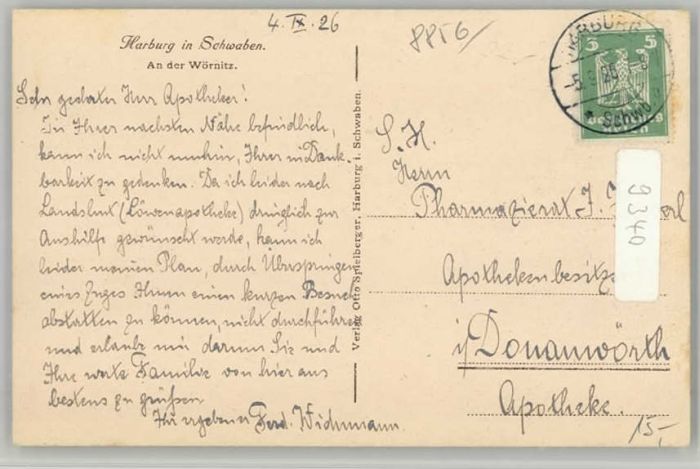 4. IX. 26
8856/
Harburg in Schwaben.
An der Wörnitz.
Sehr geehrter Herr Apotheker!
In Ihrer nächsten Nähe befindlich,
kann ich nicht umhin, Ihrer in Dank-
barkeit zu gedenken. Da ich leider nach
Landshut (Löwenapotheke) dringlich zur
Aushilfe gewünscht werde, kann ich
leider meinen Plan, durch Überspringen
eines Zuges Ihnen einen kurzen Besuch
abstatten zu können, nicht durchführen
und erlaube mir darum Sie und
Ihre werte Familie von hier aus
bestens zu grüßen
Ihr ergebener Ferd. Widnmann.
Verlag Otto Spielberger, Harburg i. Schwaben.
HARBURG
* Schwb
3 5
S. H.
Herrn
Pharmazierat J.
9340
Apothekenbesitz
i/ Donauwörth
Apotheke.
15,-